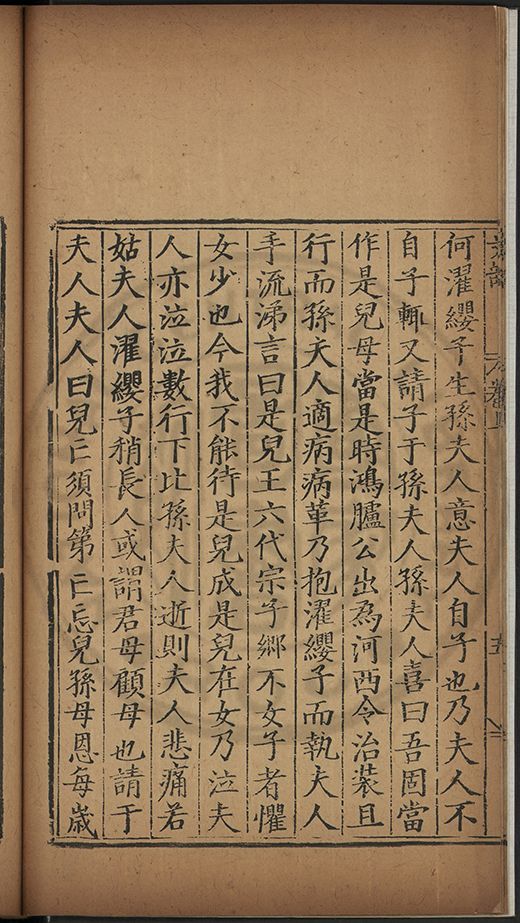 何濯纓子生孫夫人意夫人自子也乃夫人不
自子輒又請子于孫夫人孫夫人喜曰吾固當
作是兒母當是時鴻臚公出為河西令治裝且
行而孫夫人適病病革乃抱濯纓子而執夫人
手流涕言曰是兒王六代宗子鄉不女子者懼
女少也今我不能待是兒成是兒在女乃泣夫
人亦泣泣數行下比孫夫人逝則夫人悲痛若
姑夫人濯纓子稍長人或謂君母顧母也請于
夫人夫人曰兒亡須問第亡忘兒孫母恩每歲